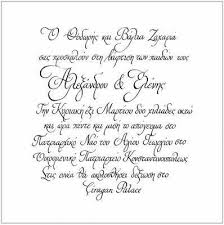 Ο Θοδωρής και Βάλια Ζαχαρία
σας προσκαλούν στη βάπτιση των παιδιών τους
Αλεξάνδρου & Ελένης
Την Κυριακή έξι Μαρτίου δύο χιλιάδες οκτώ
και ώρα πέντε και μισή το απόγευμα στο
Πατριαρχικό Ναό του Αγίου Γεωργίου στο
Οικουμενικό Πατριαρχείο Κωνσταντινουπόλεως
θα ακολουθήσει δεξίωση στο
Çırağan Palace